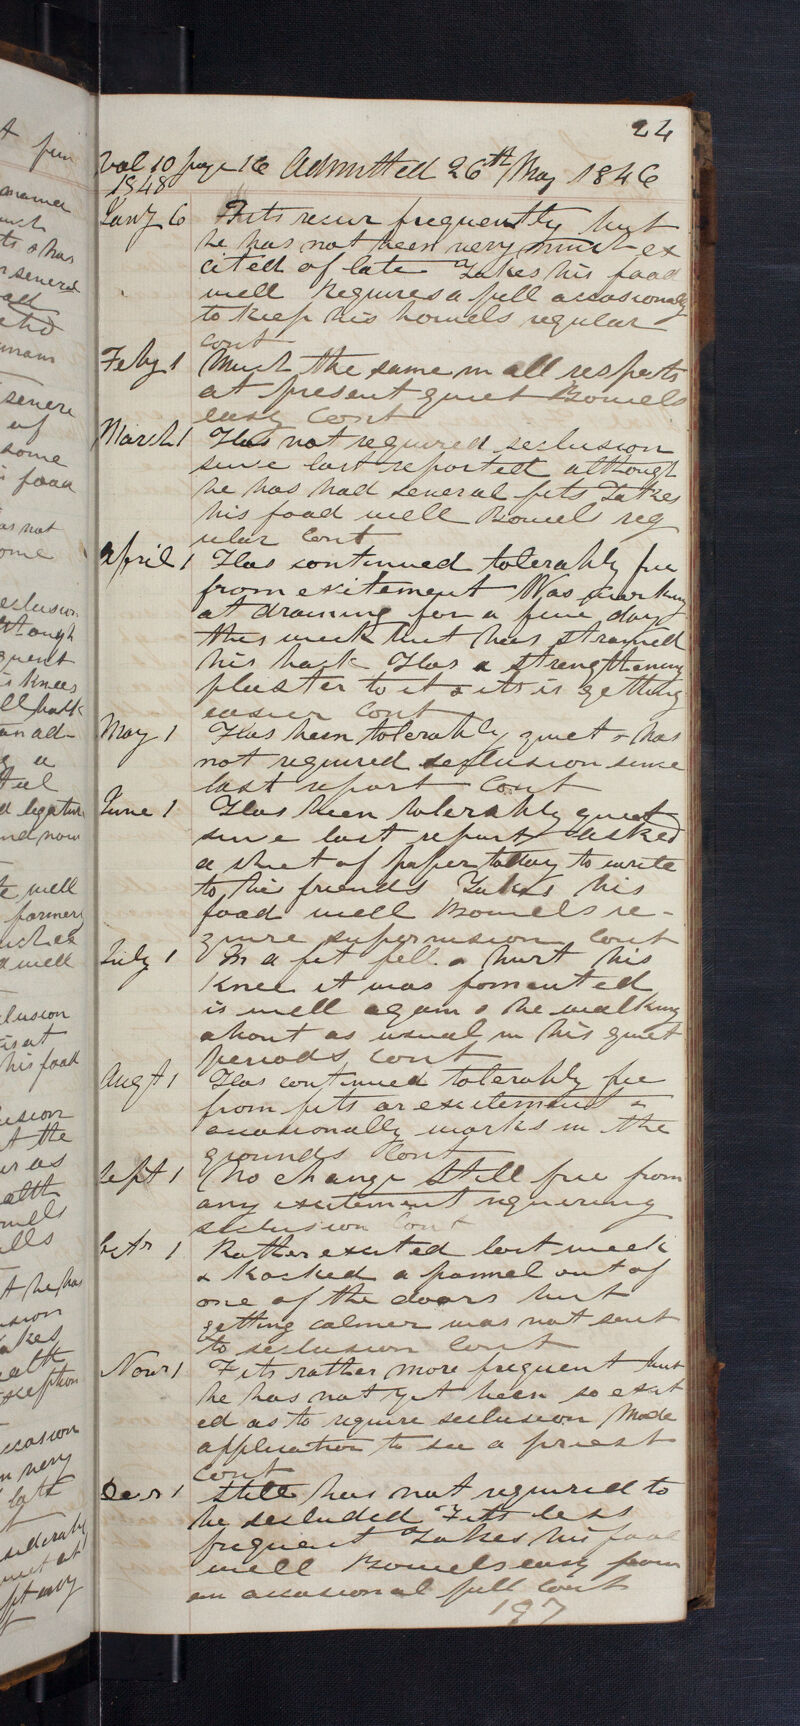 24
Vol 10 page 16 Admitted 26th May 1846
1848
Jany 6 Fits recur frequently but
he has not been very much ex
cited of late Takes his food
well Requires a pill occasionally
to keep his bowels regular
cont
Feby 1 Much the same in all respects
at present quiet Bowels
easy Cont
March 1 Has not required seclusion
since last reported although
he has had several fits Takes
his food well Bowels reg
ular Cont
April 1 Has continued tolerably free
from excitement Was working
at draining for a few days
this week but has strained
his back Has a strengthening
plaster to it & it is getting
easier Cont
May 1 Has been tolerably quiet & has
not required seclusion since
last report Cont
June 1 Has been tolerably quiet
since last report Asked
a sheet of paper today to write
to his friends Takes his
food well Bowels re-
quire supervision Cont
July 1 In a fit fell & hurt his
knee it was fomented
is well again & he walking
about as usual in his quiet
periods Cont
Augt 1 Has continued tolerably free
from fits or excitement &
occasionally works in the
grounds Cont
Sept 1 No change Still free from
any excitement requiring
seclusion Cont
Octr 1 Rather excited last week
& knocked a pannel out of
one of the doors but
getting calmer was not sent
to seclusion Cont
Novr 1 Fits rather more frequent but
he has not yet been so excit
ed as to require seclusion Made
application to see a priest
Cont
Decr 1 Still has not required to
be secluded Fits less
frequent Takes his food
well Bowels easy from
an occasional pill Cont
197